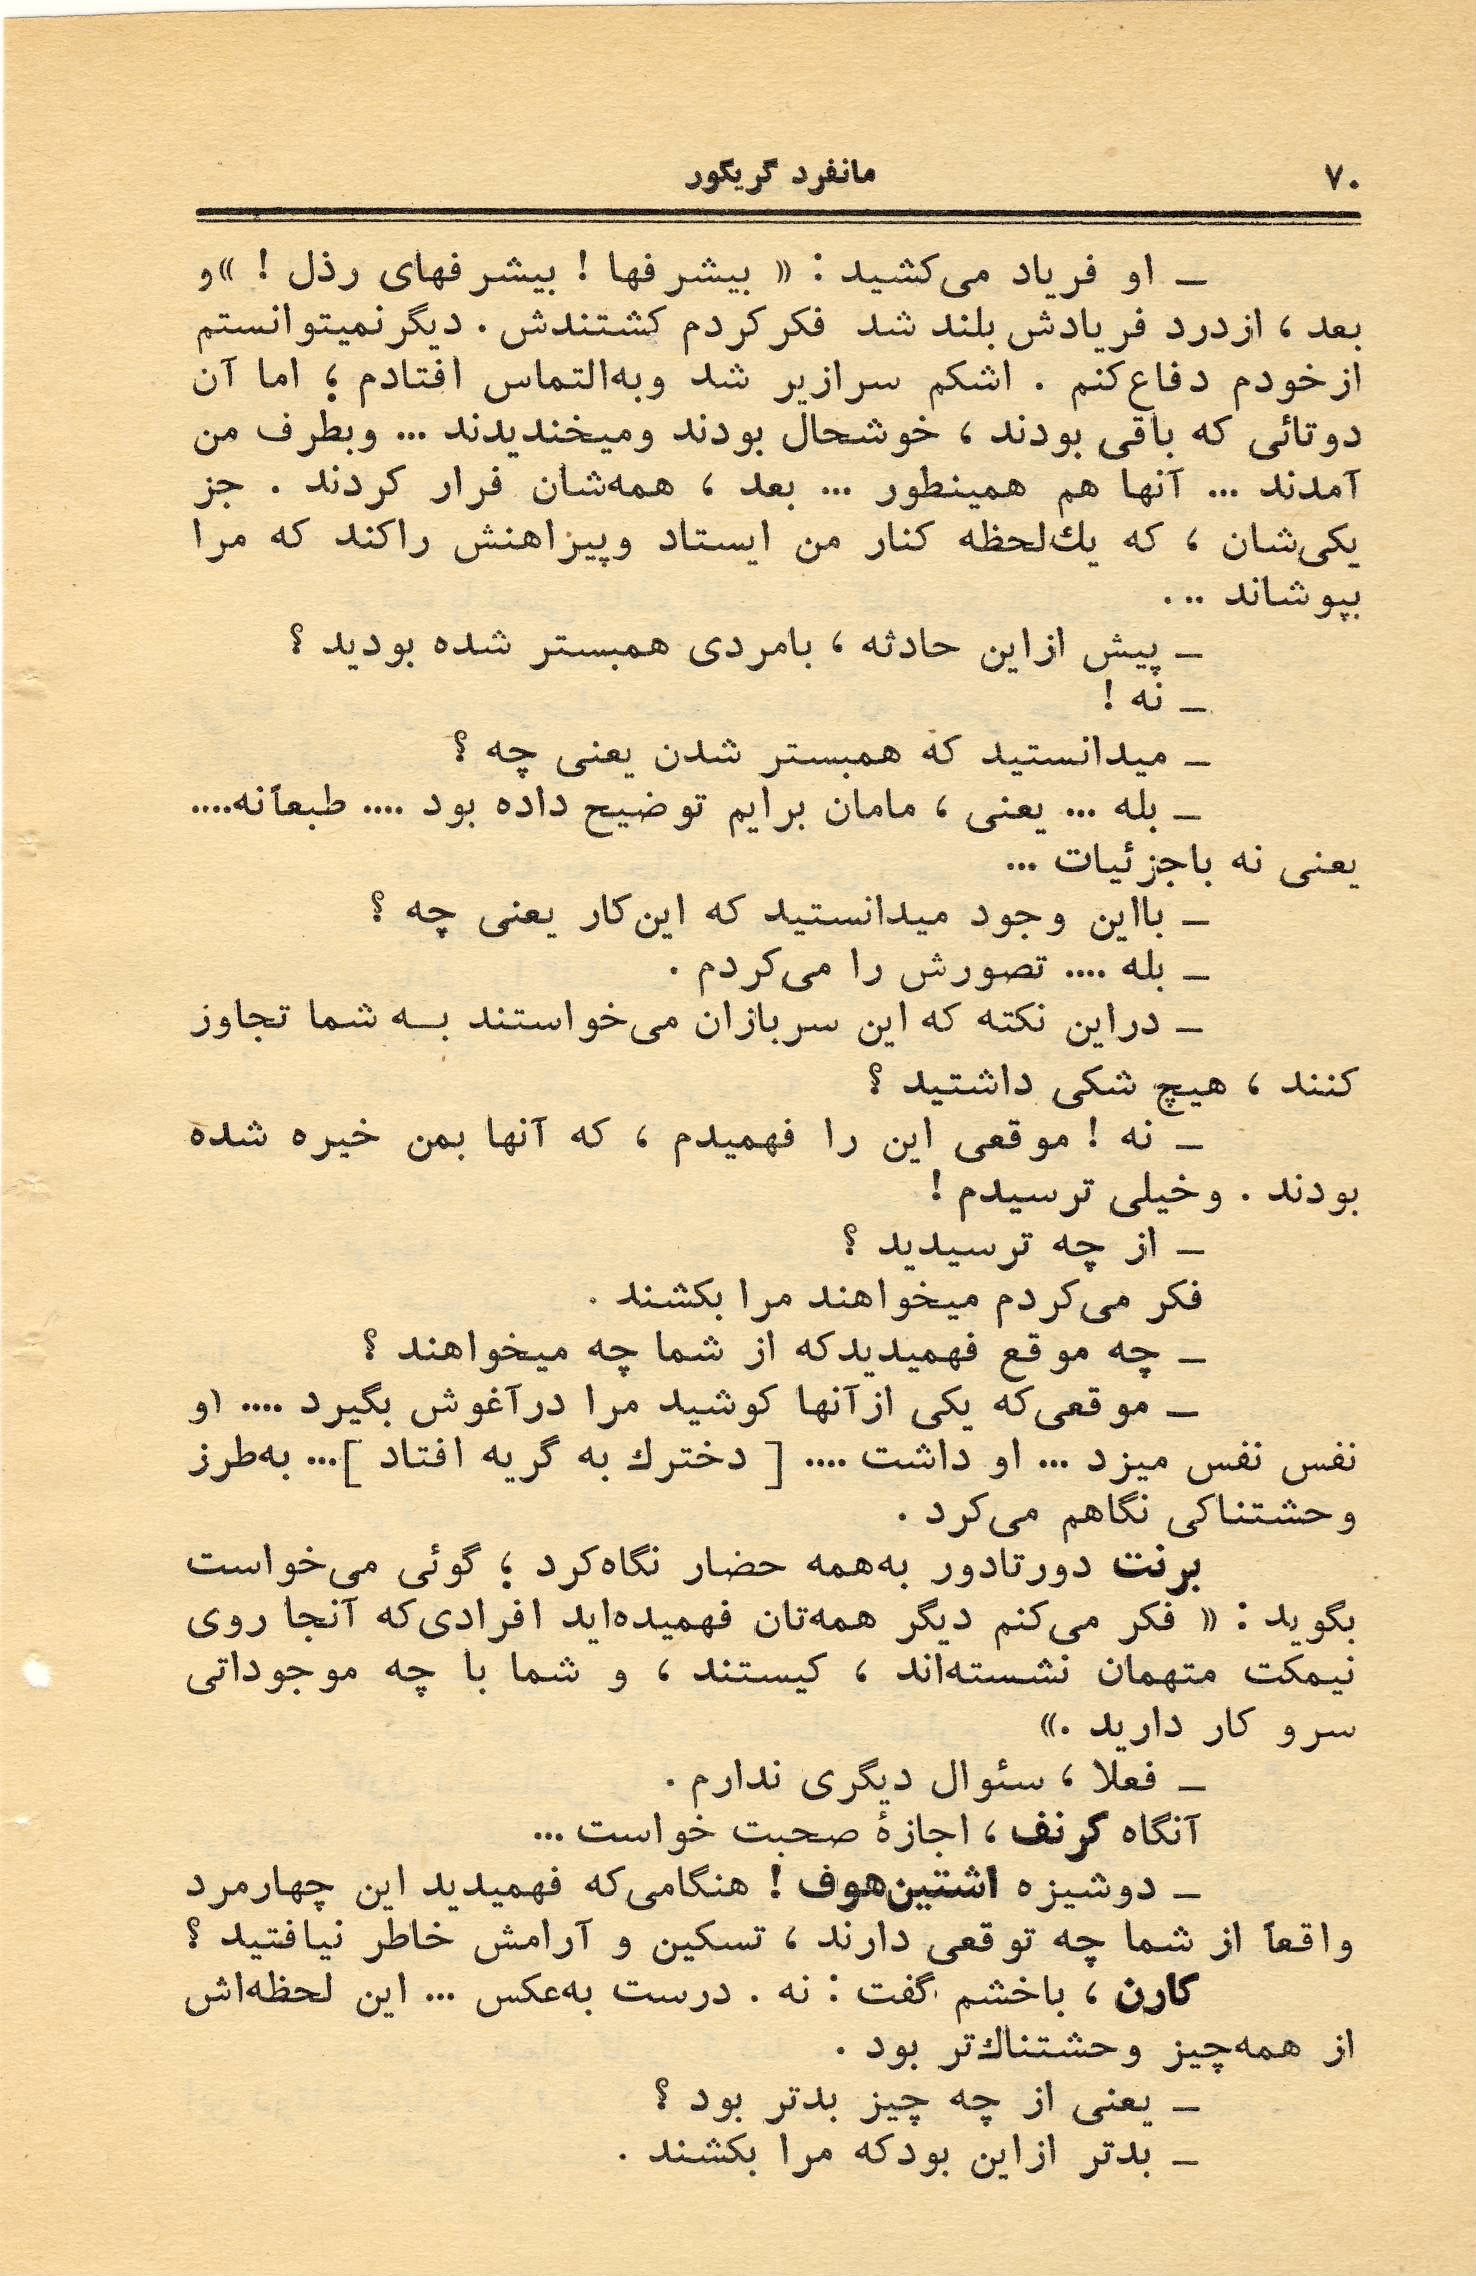 ۷۰
مانفرد گریگور
ـ او فریاد می‌کشید : « بیشرفها ! بیشرفهای رذل ! »و
بعد ، ازدرد فریادش بلند شد فکر کردم کشتندش . دیگرنمیتوانستم
ازخودم دفاع‌کنم . اشکم سرازیر شد وبه‌التماس افتادم ؛ اما آن
دوتائی که باقی بودند ، خوشحال بودند ومیخندیدند ... وبطرف من
آمدند ... آنها هم همینطور ... بعد ، همه‌شان فرار کردند . جز
یکی‌شان ، که یك‌لحظه کنار من ایستاد وپیراهنش راکند که مرا
بپوشاند ...
ـ پیش ازاین حادثه ، بامردی همبستر شده بودید ؟
ـ نه !
ـ میدانستید که همبستر شدن یعنی چه ؟
ـ بله ... یعنی ، مامان برایم توضیح داده بود .... طبعاًنه....
یعنی نه باجزئیات ...
ـ بااین وجود میدانستید که این‌کار یعنی چه ؟
ـ بله .... تصورش را می‌کردم .
ـ دراین نکته که این سربازان می‌خواستند بــه شما تجاوز
کنند ، هیچ شکی داشتید ؟
ـ نه ! موقعی این را فهمیدم ، که آنها بمن خیره شده
بودند . وخیلی ترسیدم !
ـ از چه ترسیدید ؟
فکر می‌کردم میخواهند مرا بکشند .
ـ چه موقع فهمیدیدکه از شما چه میخواهند ؟
ـ موقعی‌که یکی ازآنها کوشید مرا درآغوش بگیرد .... او
نفس نفس میزد ... او داشت .... [ دخترك به گریه افتاد ]... به‌طرز
وحشتناکی نگاهم می‌کرد .
برنت دورتادور به‌همه حضار نگاه‌کرد ؛ گوئی می‌خواست
بگوید : « فکر می‌کنم دیگر همه‌تان فهمیده‌اید افرادی‌که آنجا روی
نیمکت متهمان نشسته‌اند ، کیستند ، و شما با چه موجوداتی
سرو کار دارید .»
ـ فعلا ، سئوال دیگری ندارم .
آنگاه گرنف ، اجازهٔ صحبت خواست ...
ـ دوشیزه اشتین‌هوف ! هنگامی‌که فهمیدید این چهارمرد
واقعاً از شما چه توقعی دارند ، تسکین و آرامش خاطر نیافتید ؟
کارن ، باخشم گفت : نه . درست به‌عکس ... این لحظه‌اش
از همه‌چیز وحشتناك‌تر بود .
ـ یعنی از چه چیز بدتر بود ؟
ـ بدتر ازاین بودکه مرا بکشند .